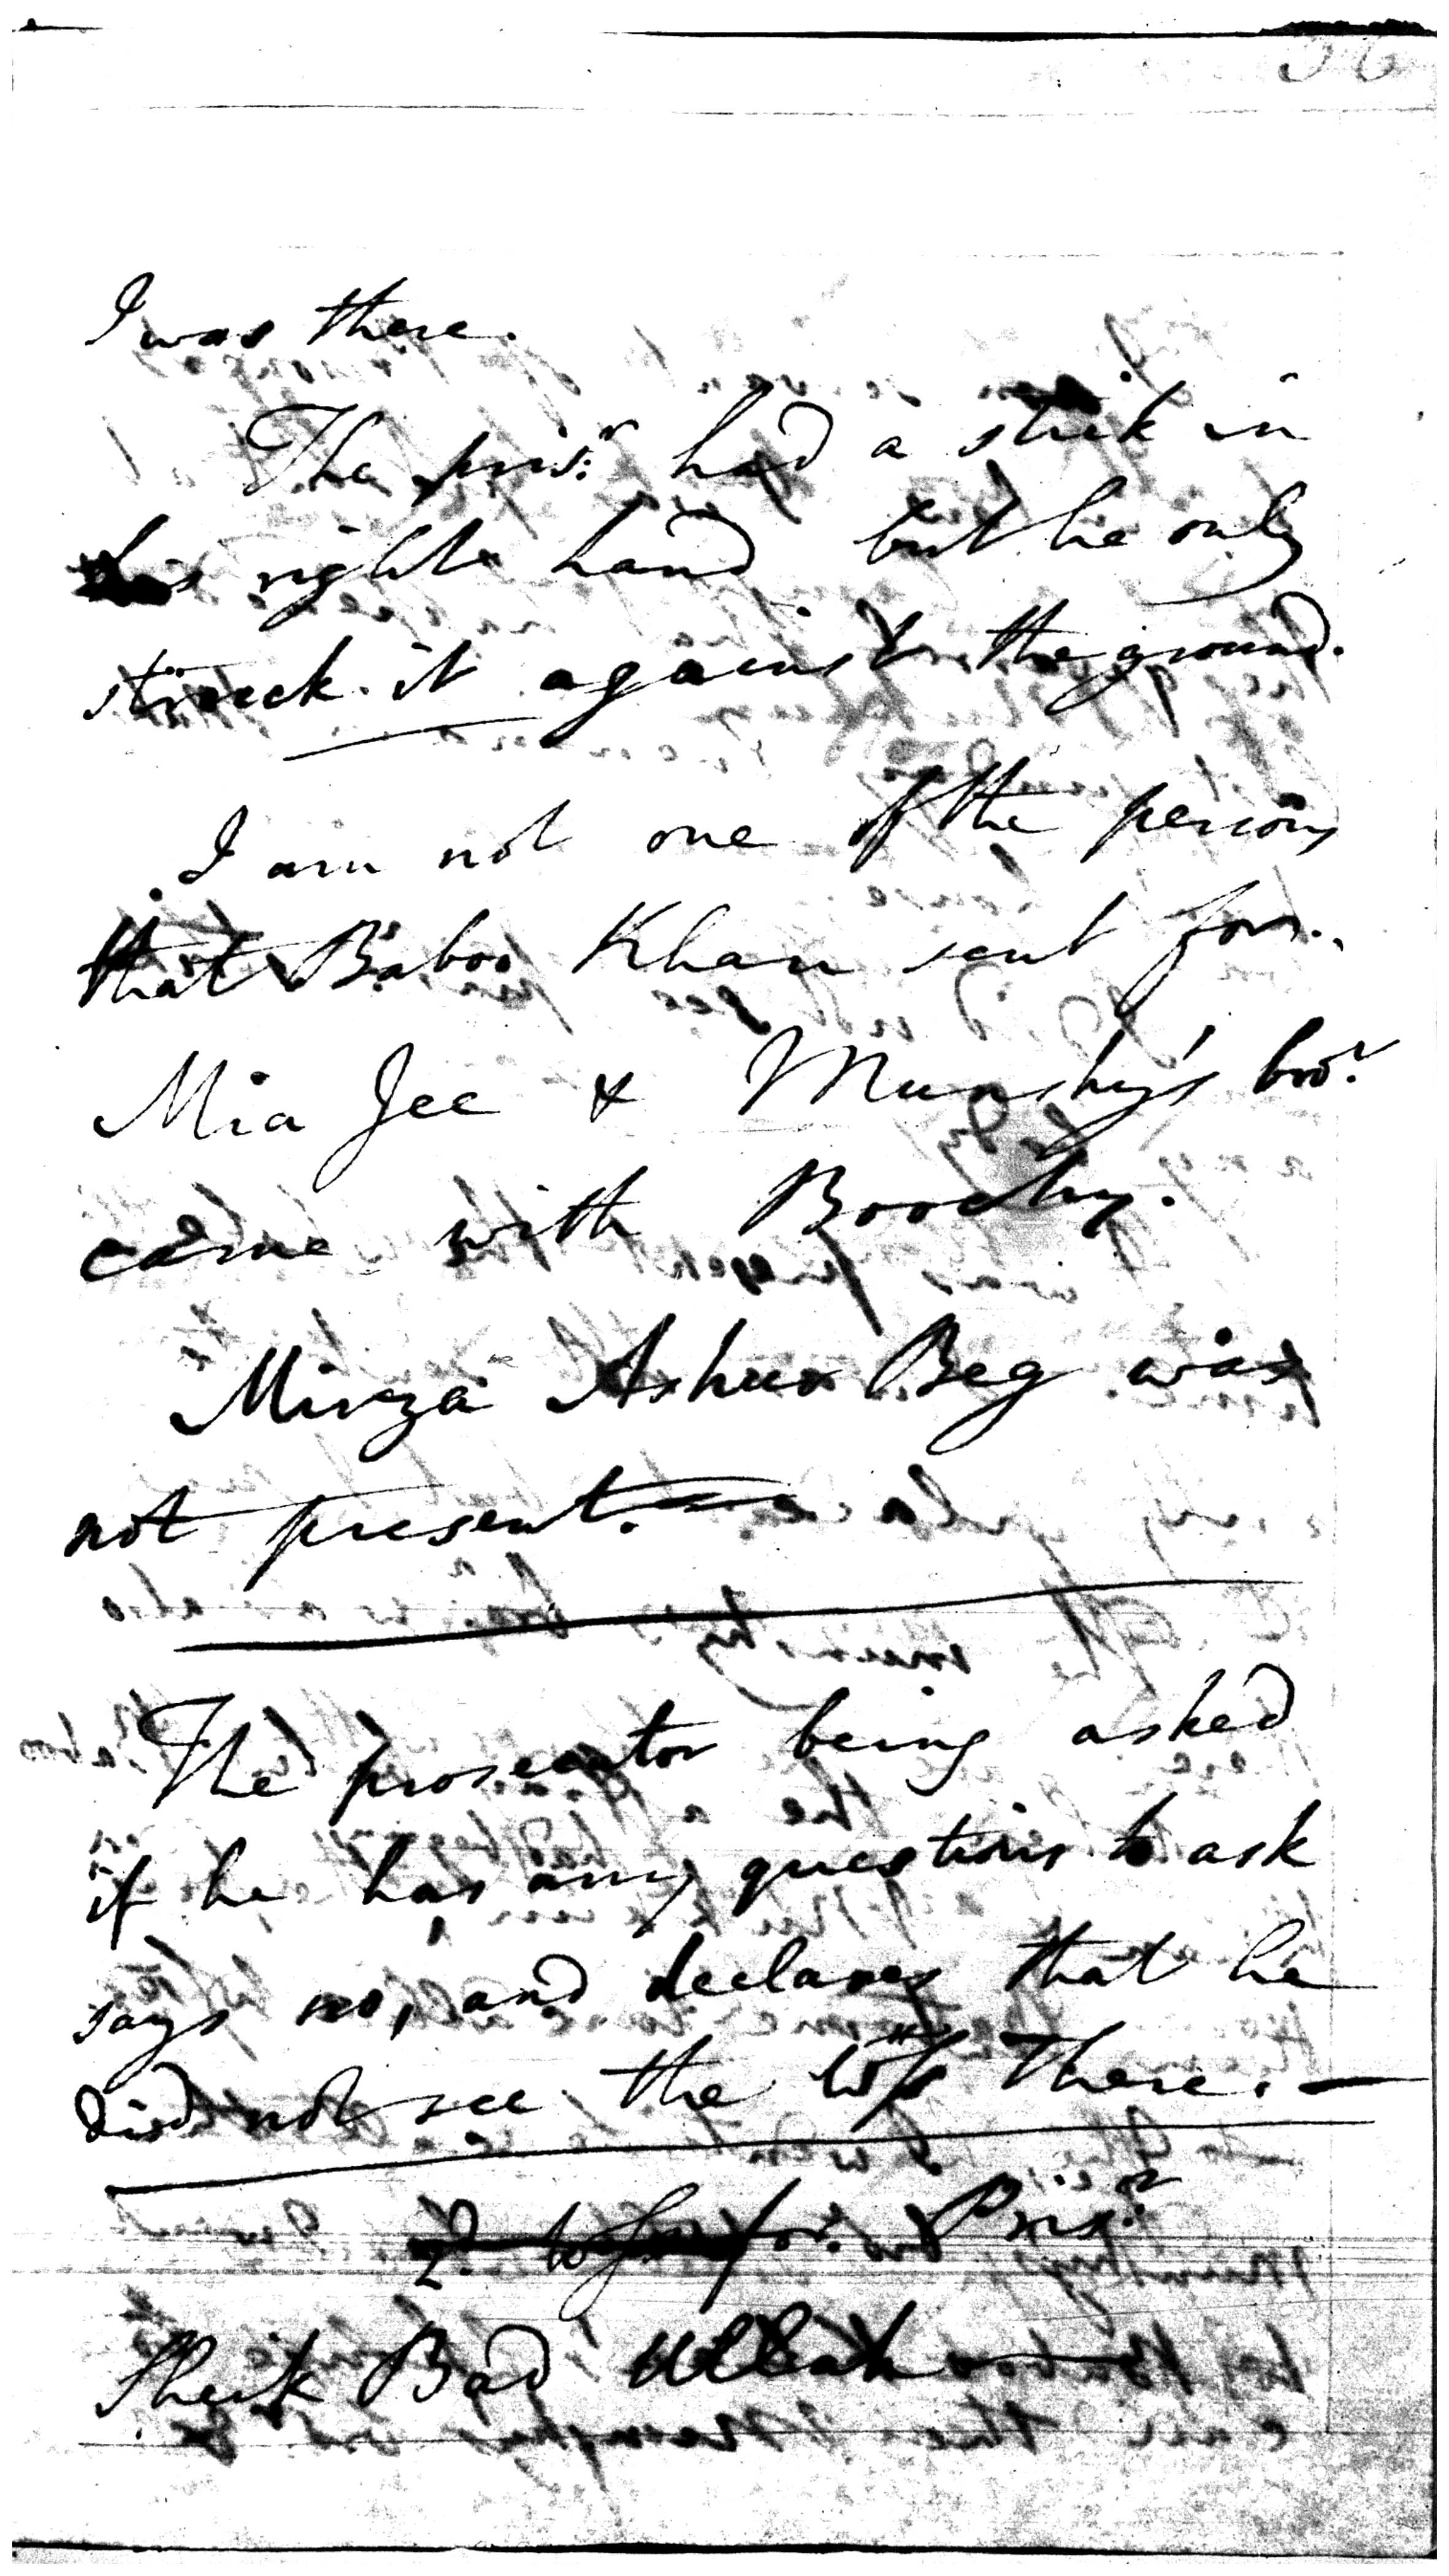 36
I was there.
The pris.r had a stick in
his right hand but he only
struck it against the ground.
I am not one of the persons
that Baboo Khan sent for.
Mia Jee & Munshy's bro.r
came with Boochy.
Mirza Ashur Beg was
not present.
The prosecutor being asked
if he has any questions to ask
says no, and declares that he
did not see the Wss there. —
2. Wss for Pris.r
Sheik Bad Ullah